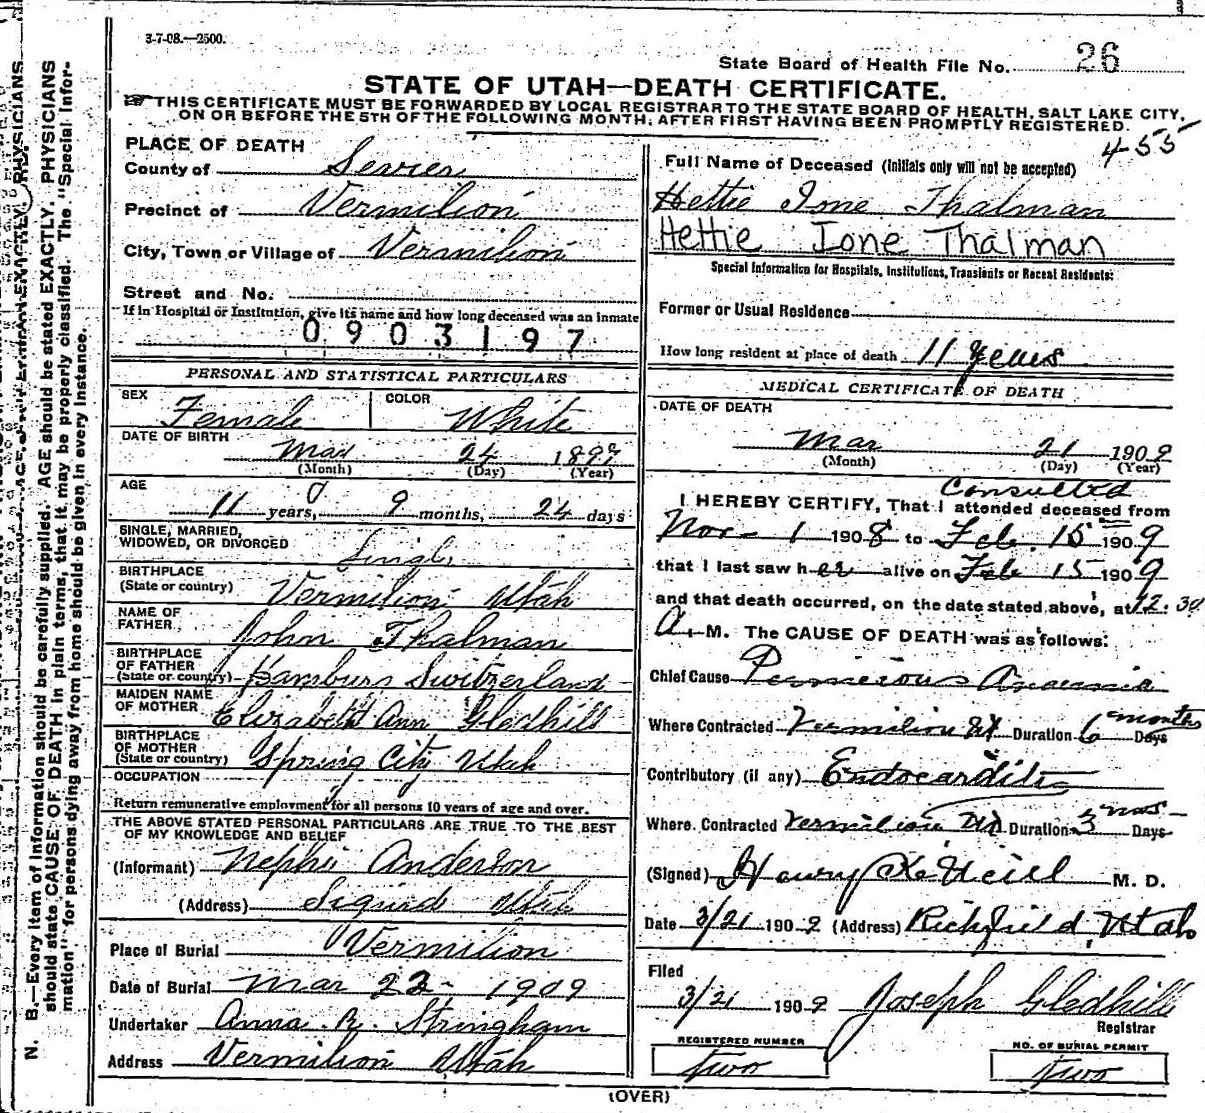 3-7-08.—2500.
State Board of Health File No. 26
STATE OF UTAH—DEATH CERTIFICATE.
THIS CERTIFICATE MUST BE FORWARDED BY LOCAL REGISTRAR TO THE STATE BOARD OF HEALTH, SALT LAKE CITY,
ON OR BEFORE THE 5TH OF THE FOLLOWING MONTH, AFTER FIRST HAVING BEEN PROMPTLY REGISTERED.
455
PLACE OF DEATH
County of Sevier
Precinct of Vermilion
City, Town or Village of Vermilion
Street and No.
If in Hospital or Institution, give its name and how long deceased was an inmate
0903197
PERSONAL AND STATISTICAL PARTICULARS
SEX Female COLOR White
DATE OF BIRTH
Mar 24 189
(Month) (Day) (Year)
AGE
11 years, 9 months, 24 days
SINGLE, MARRIED,
WIDOWED, OR DIVORCED Single
BIRTHPLACE
(State or country) Vermilion Utah
NAME OF
FATHER John Thalman
BIRTHPLACE
OF FATHER
(State or country) Switzerland
MAIDEN NAME
OF MOTHER Elizabeth Ann Gledhill
BIRTHPLACE
OF MOTHER
(State or country) Spring City Utah
OCCUPATION
Return remunerative employment for all persons 10 years of age and over.
THE ABOVE STATED PERSONAL PARTICULARS ARE TRUE TO THE BEST
OF MY KNOWLEDGE AND BELIEF
(Informant) Nephi Anderson
(Address) Sigurd Utah
Place of Burial Vermilion
Date of Burial Mar 22 - 1909
Undertaker Anna R. Stringham
Address Vermilion Utah
Full Name of Deceased (Initials only will not be accepted)
Hettie Ione Thalman
Hettie Ione Thalman
Special Information for Hospitals, Institutions, Transients or Recent Residents:
Former or Usual Residence
How long resident at place of death 11 years
MEDICAL CERTIFICATE OF DEATH
DATE OF DEATH
Mar 21 1909
(Month) (Day) (Year)
Consulted
I HEREBY CERTIFY, That I attended deceased from
Nov - 1 1908 to Feb. 15 1909
that I last saw her alive on Feb 15 1909
and that death occurred, on the date stated above, at 12:30
A. M. The CAUSE OF DEATH was as follows:
Chief Cause Pernicious Anaemia
months
Where Contracted Vermilion Ut Duration 6 Days
Contributory (if any) Endocarditis
mos -
Where Contracted Vermilion Ut Duration 3 Days
(Signed) M. D.
Date 3/21 1909 (Address) Richfield, Utah
Filed
3/21 1909 Joseph Gledhill
Registrar
REGISTERED NUMBER
Two
NO. OF BURIAL PERMIT
Two
(OVER)
N. B.—Every item of information should be carefully supplied. AGE should be stated EXACTLY. PHYSICIANS
should state CAUSE OF DEATH in plain terms, that it may be properly classified. The "Special Infor-
mation" for persons dying away from home should be given in every instance.